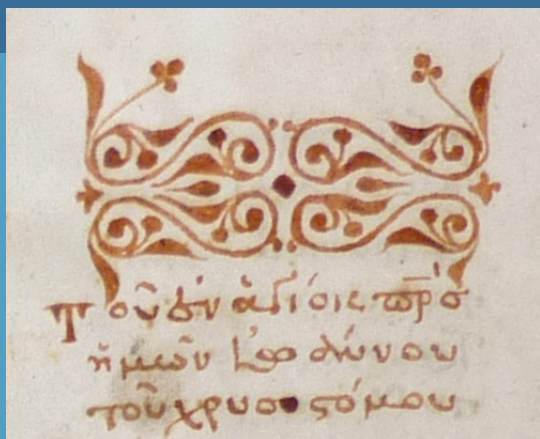 Τοῦ ἐν ἁγίοις πρς
ἡμῶν Ἰω άννου
τοῦ χρυσοστόμου